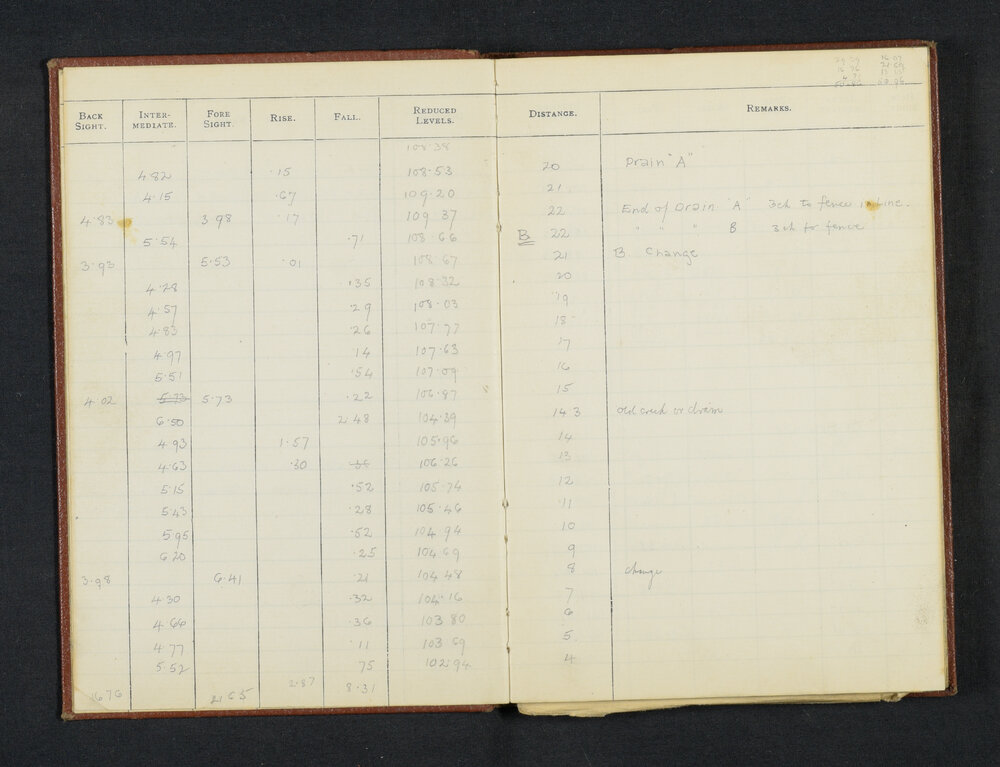 BACK SIGHT. INTER-MEDIATE. FORE SIGHT. RISE. FALL. REDUCED LEVELS. DISTANCE. REMARKS.
108.38
4.82 .15 108.53 20 Drain "A"
4.15 .67 109.20 21
4.83 3.98 .17 109.37 22 End of Drain "A" 3ch to fence in line.
5.54 .71 108.66 B 22 " " " B 3ch to fence
3.93 5.53 .01 108.67 21 B. Change
4.28 .35 108.32 20
4.57 .29 108.03 19
4.83 .26 107.77 18
4.97 .14 107.63 17
5.51 .54 107.09 16
4.02 5.73 5.73 .22 106.87 15
6.50 2.48 104.39 14.3 old creek or drain
4.93 1.57 105.96 14
4.63 .30 106.26 13
5.15 .52 105.74 12
5.43 .28 105.46 11
5.95 .52 104.94 10
6.20 .25 104.69 9
3.98 6.41 .21 104.48 8 change
4.30 .32 104.16 7
4.66 .36 103.80 6
4.77 .11 103.69 5
5.52 75 102.94 4
16 76 21 65 2.87 8.31